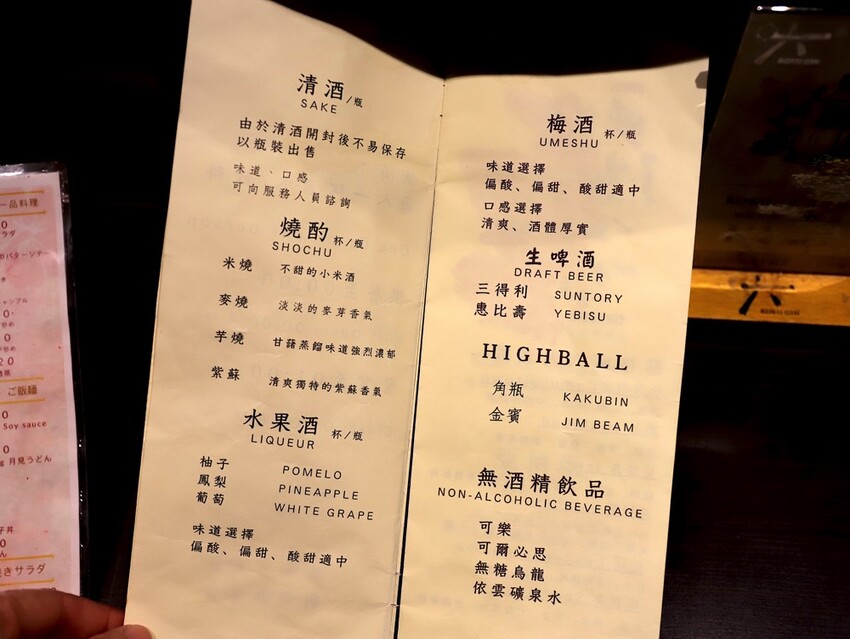 清酒/瓶
SAKE
由於清酒開封後不易保存
以瓶裝出售
味道、口感
可向服務人員諮詢
燒酌 杯/瓶
SHOCHU
米燒 不甜的小米酒
麥燒 淡淡的麥芽香氣
芋燒 甘藷蒸餾味道強烈濃郁
紫蘇 清爽獨特的紫蘇香氣
水果酒 杯/瓶
LIQUEUR
柚子 POMELO
鳳梨 PINEAPPLE
葡萄 WHITE GRAPE
味道選擇
偏酸、偏甜、酸甜適中
梅酒 杯/瓶
UMESHU
味道選擇
偏酸、偏甜、酸甜適中
口感選擇
清爽、酒體厚實
生啤酒
DRAFT BEER
三得利 SUNTORY
惠比壽 YEBISU
HIGHBALL
角瓶 KAKUBIN
金賓 JIM BEAM
無酒精飲品
NON-ALCOHOLIC BEVERAGE
可樂
可爾必思
無糖烏龍
依雲礦泉水
一品料理
ラダ
ご飯麺
Soy sauce
月見うどん
きサラダ
六
六